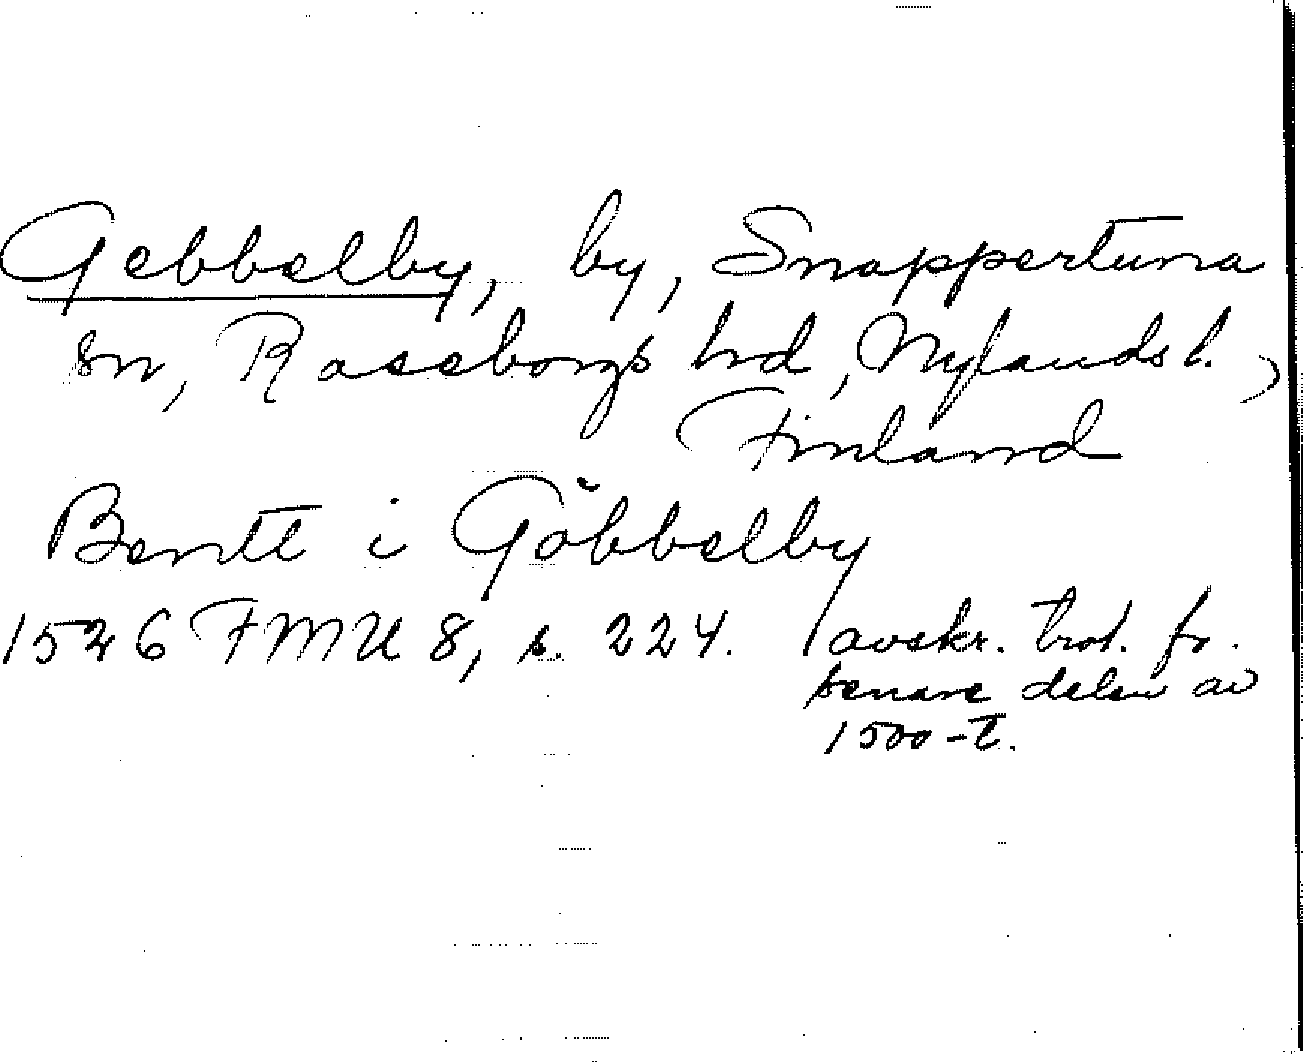 Gebbelby, by, Snappertuna
sn, Raseborgs hrd, Nylands l.,
Finland
Bentt i Göbbelby
1526 FMU 8, s. 224. avskr. trol. fr.
senare delen av
1500-t.